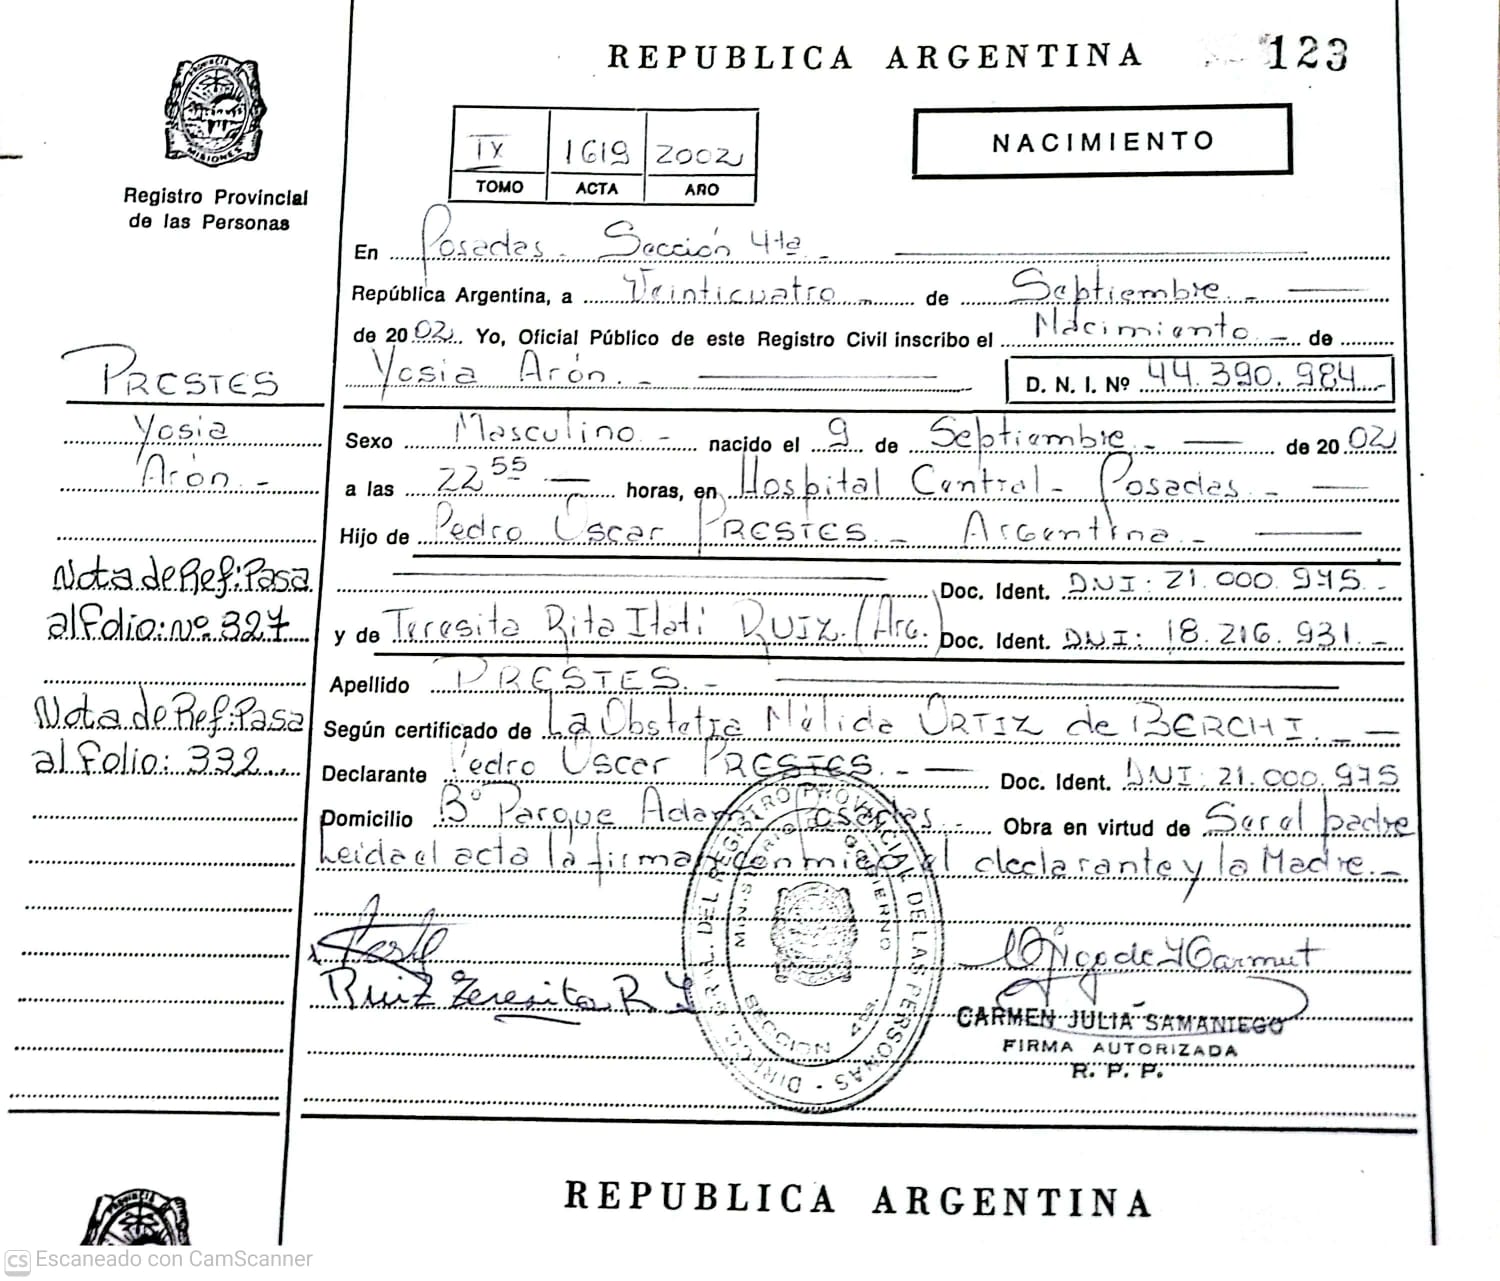 REPUBLICA ARGENTINA
123
PROVINCIA DE
MISIONES
Registro Provincial
de las Personas
TX 1619 2002
TOMO ACTA AÑO
NACIMIENTO
En Posadas - Sección 4ta -
República Argentina, a Veinticuatro - de Septiembre -
de 2002 Yo, Oficial Público de este Registro Civil inscribo el Nacimiento - de
Yosia Arón - D. N. I. Nº 44.390.984 -
PRESTES
Yosia
Arón -
Sexo Masculino - nacido el 9 de Septiembre - de 2002
a las 22 55 horas, en Hospital Central - Posadas -
Hijo de Pedro Oscar PRESTES - Argentina -
Doc. Ident. DNI: 21.000.975 -
Nota de Ref: Pasa
al Folio: Nº 327
y de Teresita Rita Itati RUIZ. (Arg.) Doc. Ident. DNI: 18.216.931. -
Apellido PRESTES. -
Nota de Ref: Pasa
al Folio: 332
Según certificado de La Obstetra Nélida ORTIZ de BERCHI. -
Declarante Pedro Oscar PRESTES. - Doc. Ident. DNI: 21.000.975
Domicilio Bº Parque Adam Posadas - Obra en virtud de Ser el padre
Leida el acta la firman conmigo el declarante y la Madre. -
Ruiz Teresita R. I
DIREC. GRAL. DEL REGISTRO PROVINCIAL DE LAS PERSONAS
MINISTERIO GOBIERNO
CARMEN JULIA SAMANIEGO
FIRMA AUTORIZADA
R. P. P.
REPUBLICA ARGENTINA
CS Escaneado con CamScanner